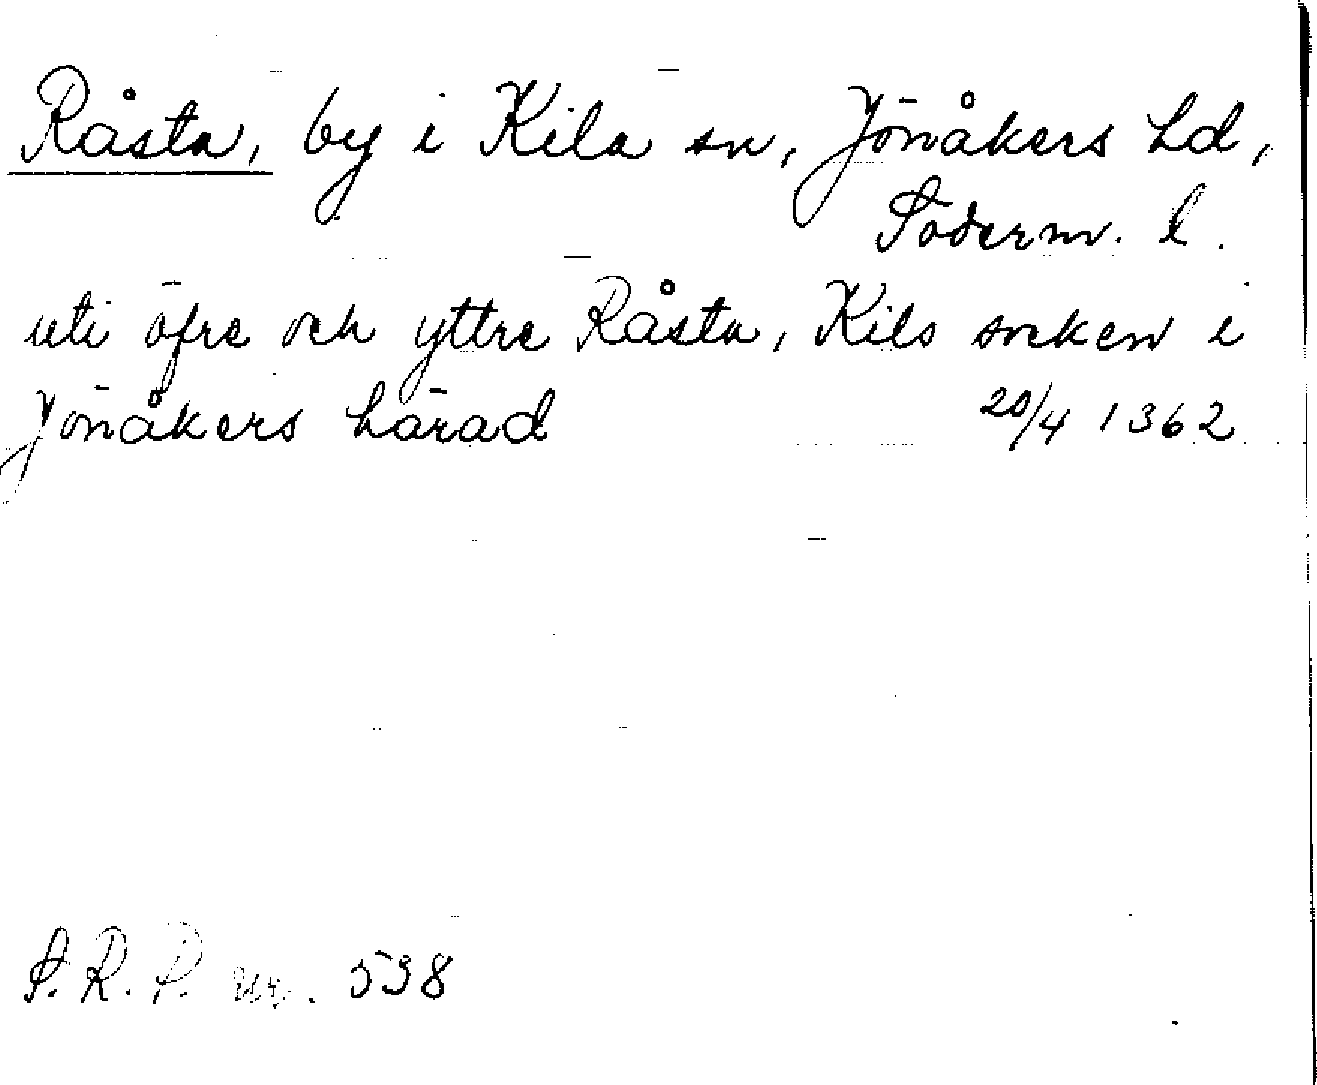 Råsta, by i Kila sn, Jönåkers hd,
Söderm. l.
uti öfre och yttre Råsta, Kils socken i
Jönåkers härad 20/4 1362
S. R. P. nr. 538